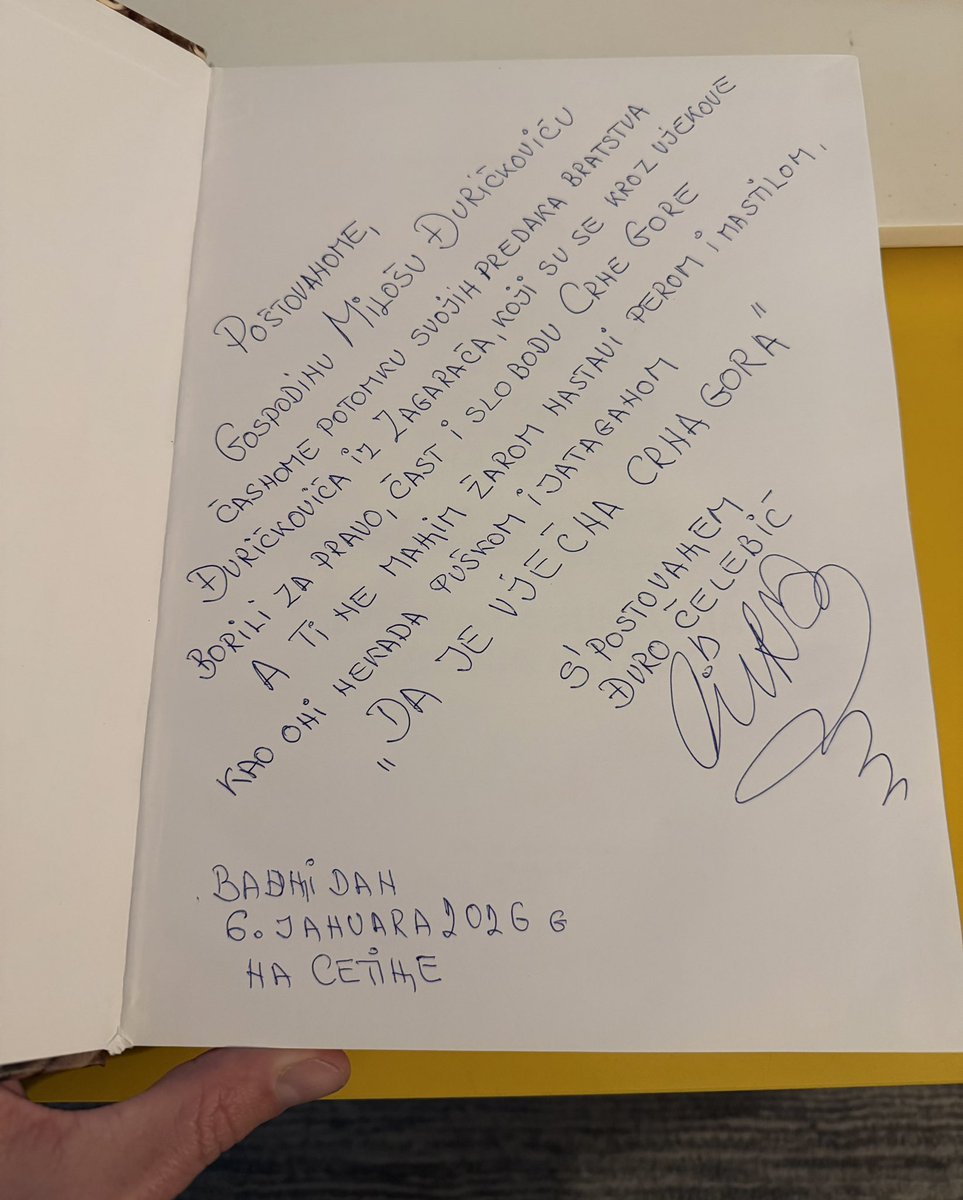 POŠTOVAНOME,
GOSPODIНU MILOŠU ĐURIČKOVIĆU
ČASНOME POTOMKU SVOJIH PREDAKA BRATSTVA
ĐURIČKOVIĆA IZ ZAGARAČA, KOJI SU SE KROZ VJEKOVE
BORILI ZA PRAVO, ČAST I SLOBODU CRНE GORE
A TI НE MAЊIM ŽAROM НASTAVI PEROM I MASTILOM,
KAO OНI НEKADA PUŠKOM I JATAGAНOM
"DA JE VJEČНA CRНA GORA"
S' POSTOVAЊEM
ĐURO ČELEBIĆ
BADЊI DAН
6. JAНUARA 2026 G
НA CETIЊE